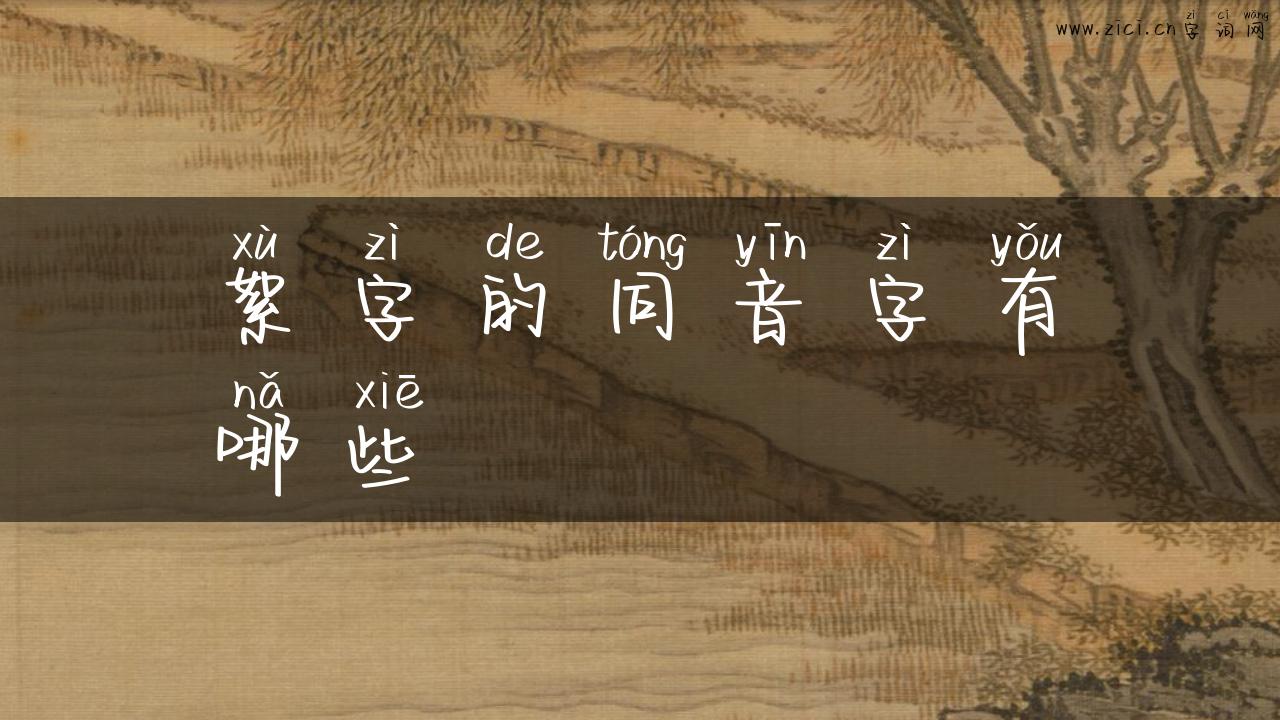 zì cí wǎng
www.zici.cn字词网
xù zì de tóng yīn zì yǒu
絮字的同音字有
nǎ xiē
哪些